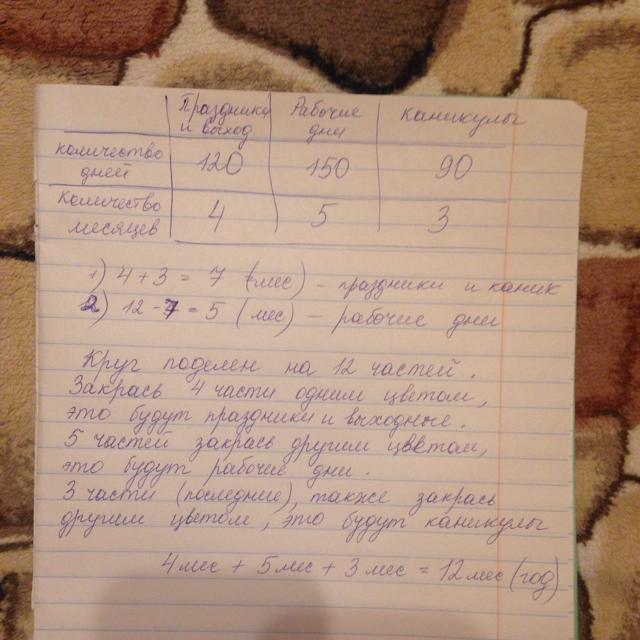 Праздники и выход. Рабочие дни Каникулы
количество дней 120 150 90
количество месяцев 4 5 3
1) 4 + 3 = 7 (мес) - праздники и каник
2) 12 - 7 = 5 (мес) - рабочие дни
Круг поделен на 12 частей.
Закрась 4 части одним цветом,
это будут праздники и выходные.
5 частей закрась другим цветом,
это будут рабочие дни.
3 части (последние), также закрась
другим цветом, это будут каникулы
4 мес + 5 мес + 3 мес = 12 мес (год)